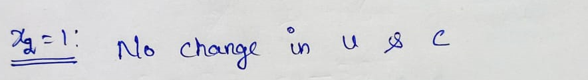 x₂ = 1: No change in u & c